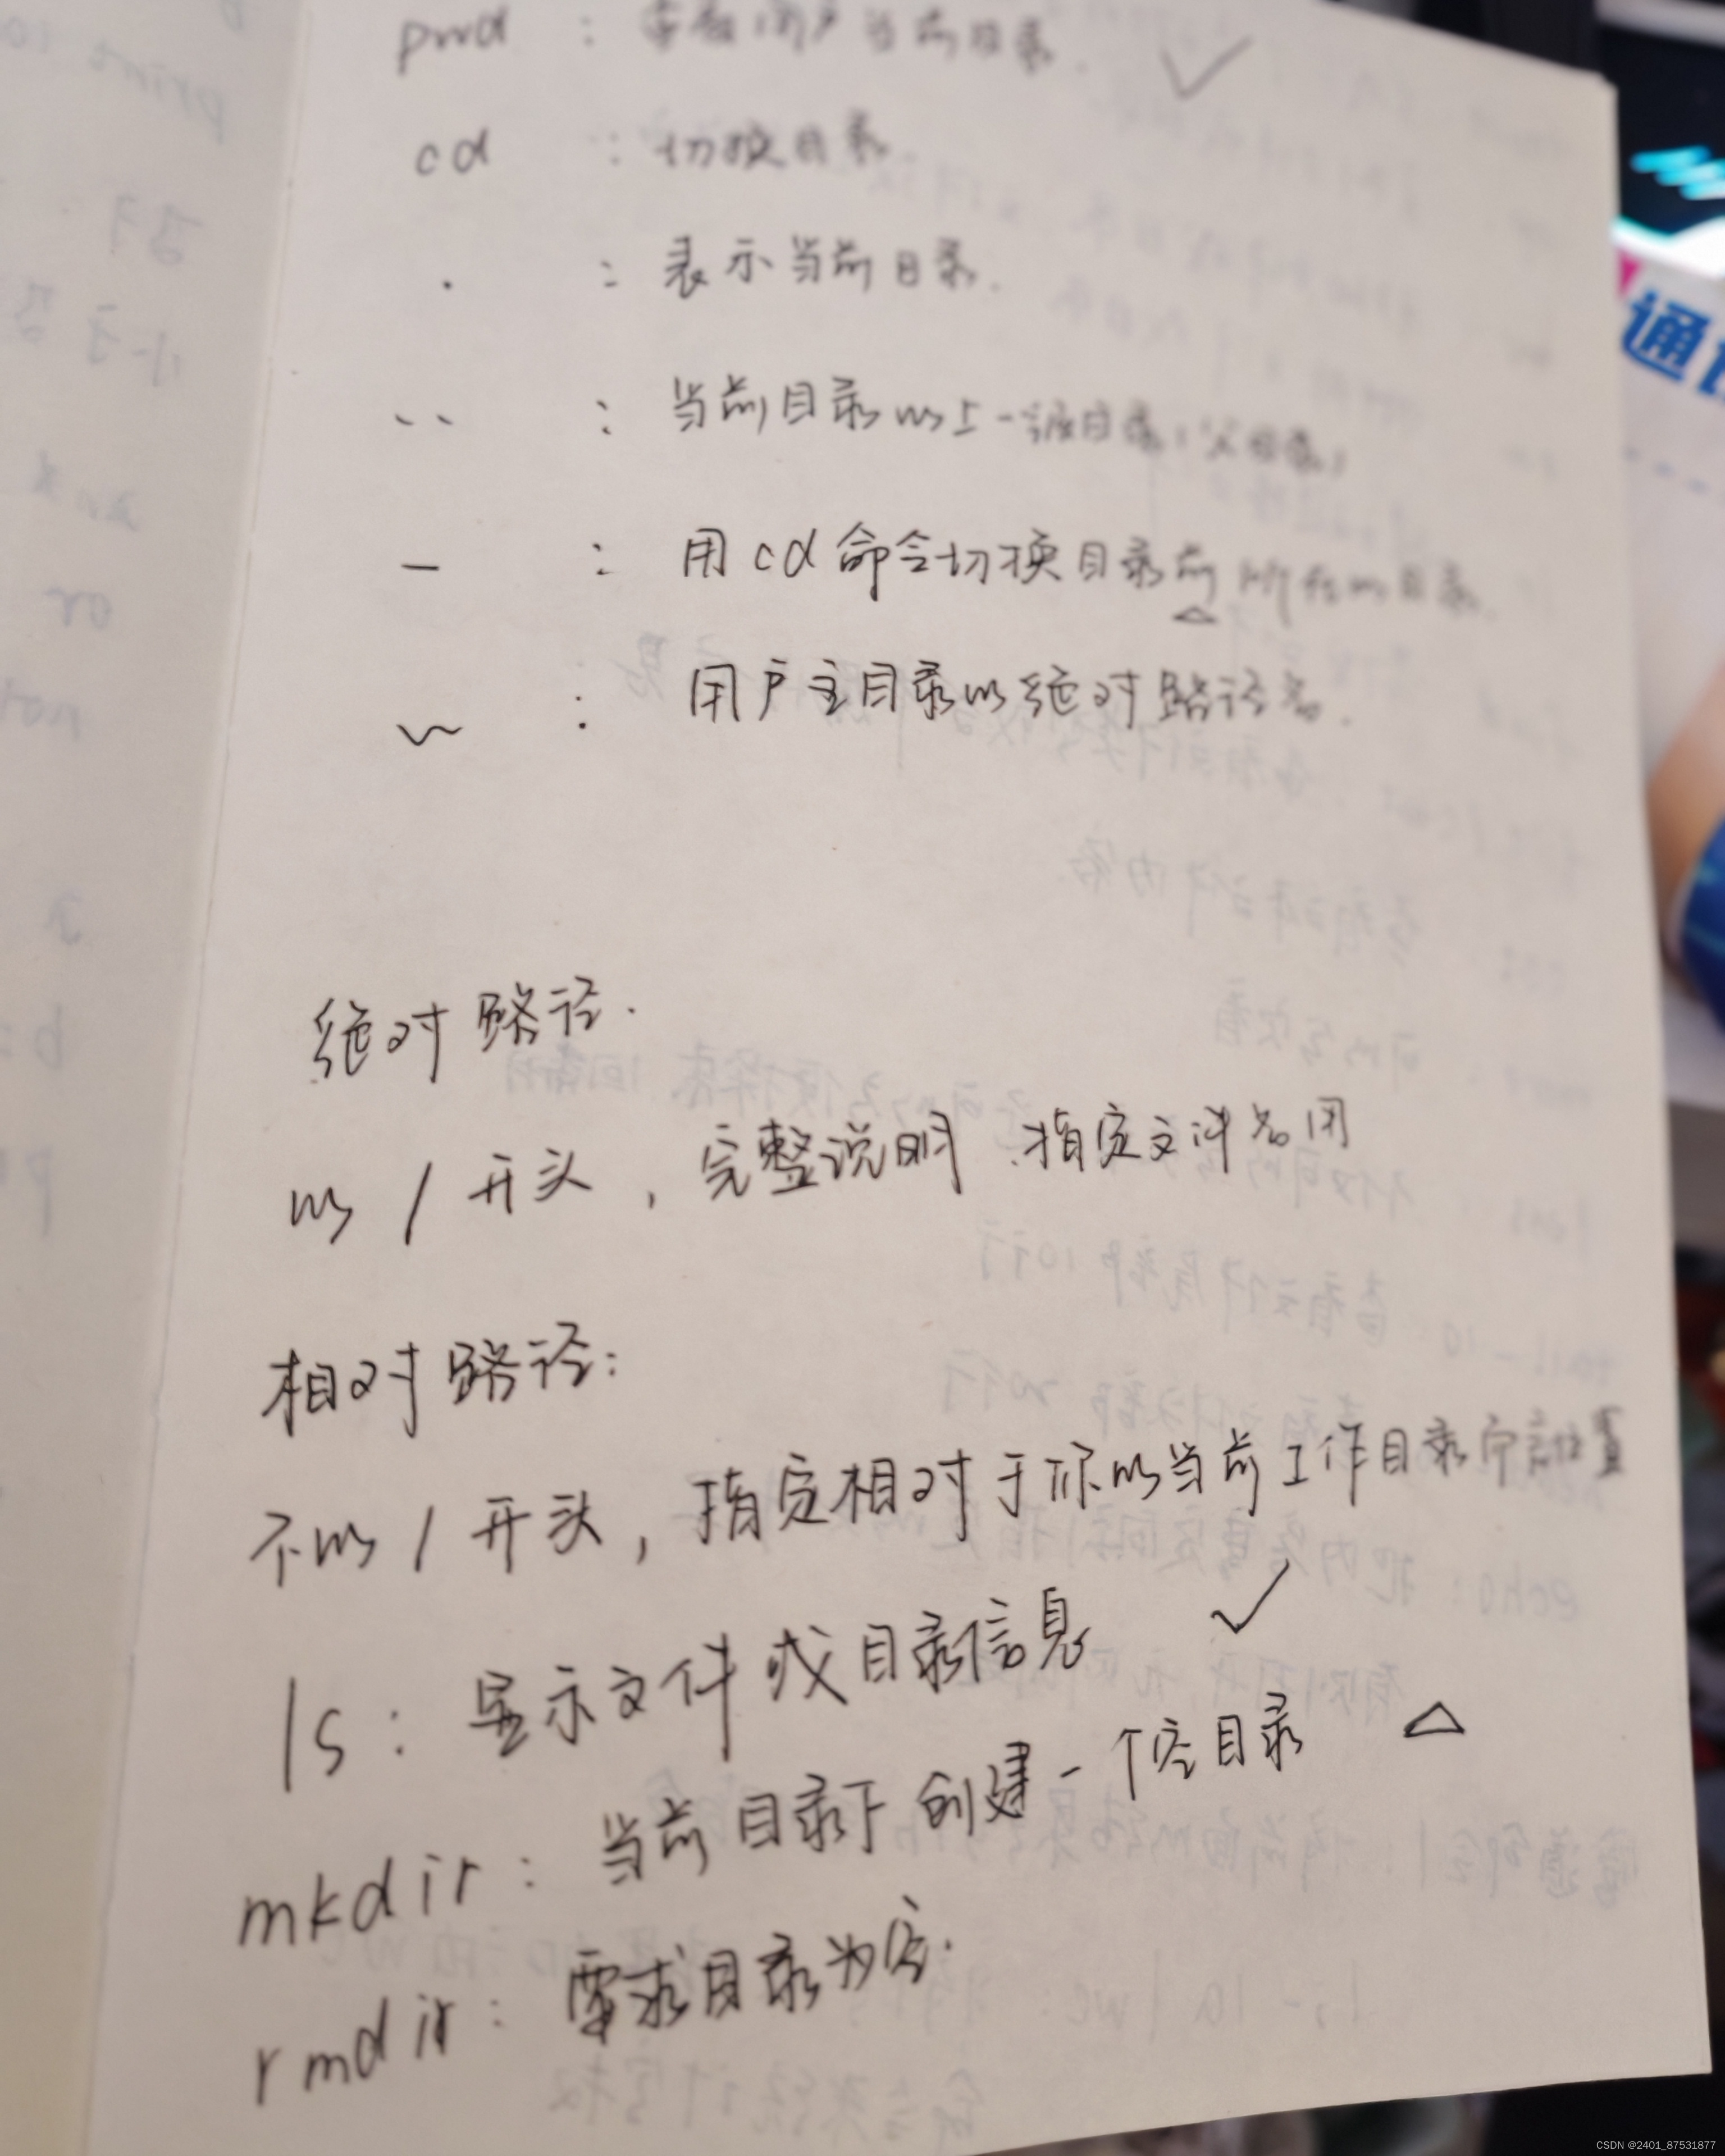 pwd : 查看用户当前目录. ✓
cd : 切换目录.
. : 表示当前目录.
.. : 当前目录的上一级目录(父目录)
- : 用cd命令切换目录前所在的目录.
~ : 用户主目录的绝对路径名.
绝对路径.
以 / 开头, 完整说明 指定文件名用
相对路径:
不以 / 开头, 指定相对于你的当前工作目录位置
ls : 显示文件或目录信息 ✓
mkdir : 当前目录下创建一个空目录 △
rmdir : 要求目录为空.
通
CSDN @2401_87531877